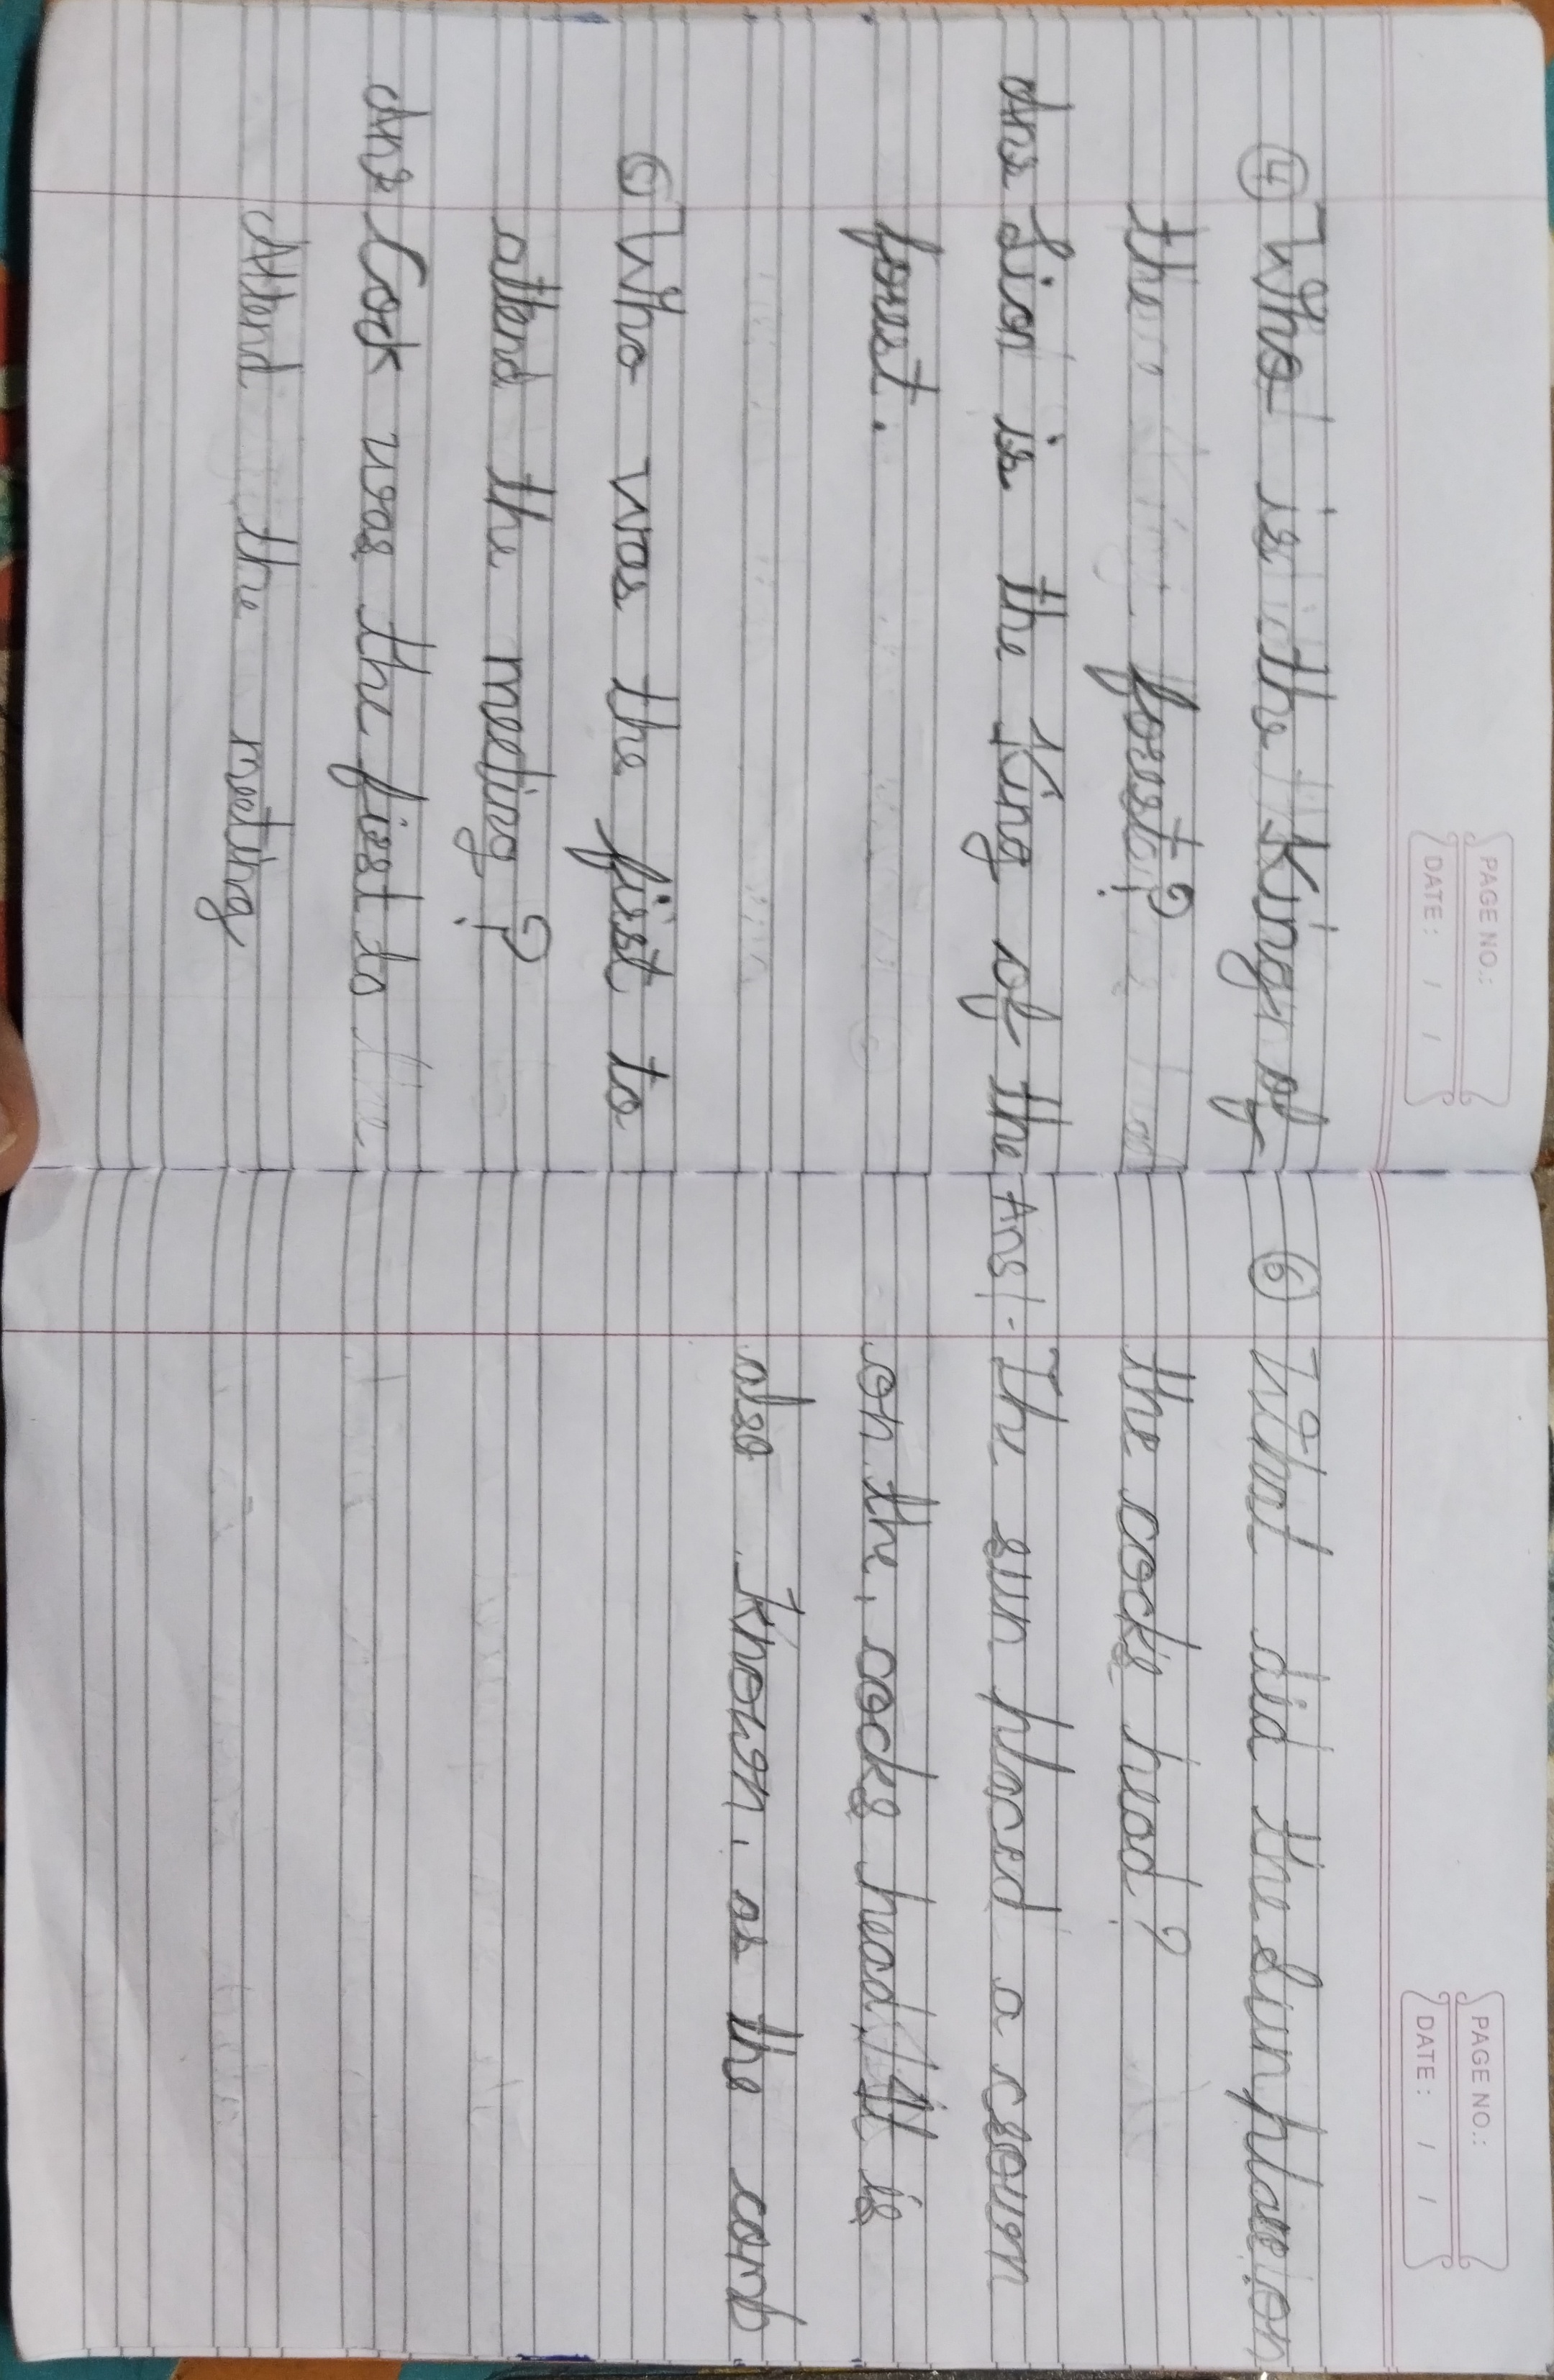 PAGE NO.:
DATE: / /
④ Who is the King of
the forest?
Ans Lion is the King of the
forest.
⑤ Who was the first to
attend the meeting?
Ans Cock was the first to
Attend the meeting
PAGE NO.:
DATE: / /
⑥ What did the Sun place on
the cocks head?
Ans - The sun placed a crown
on the cocks head. It is
also known as the comb